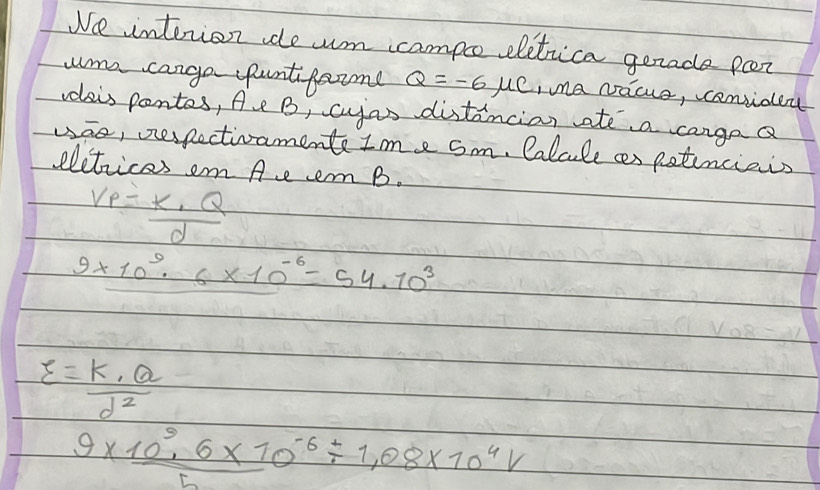 No interior de um campo elétrica gerado por
uma carga puntiforme Q = -6 μC, no vácuo, considere
dois pontos, A e B, cujas distâncias até a carga Q
são, respectivamente 1m e 5m. Calcule os potenciais
elétricos em A e em B.
VP = K . Q
d
9 x 10⁹ . 6 x 10⁻⁶ = 54 . 10³
ξ = K . Q
d²
9 x 10⁹ . 6 x 10⁻⁶ ÷ 1,08 x 10⁴ V
5